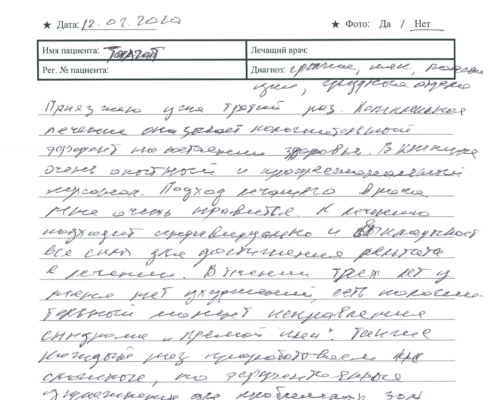 ★ Дата: 12.02.2020 ★ Фото: Да / Нет
Имя пациента: Лечащий врач:
Рег. № пациента: Диагноз: грыжи, шеи,
грудные отделы
Приезжаю уже третий раз. Комплексное
лечение оказывает положительный
эффект на состоянии здоровья. В клинике
очень опытный и профессиональный
персонал. Подход лечащего врача
мне очень нравится. К лечению
подходит индивидуально и выкладывает
все силы для достижения результата
в лечении. В течении трех лет у
меня нет ухудшений, есть положи-
тельный момент исправления
синдрома "прямой шеи". Также
каждый раз прорабатываем
сложные, но эффективные
упражнения для проблемных зон